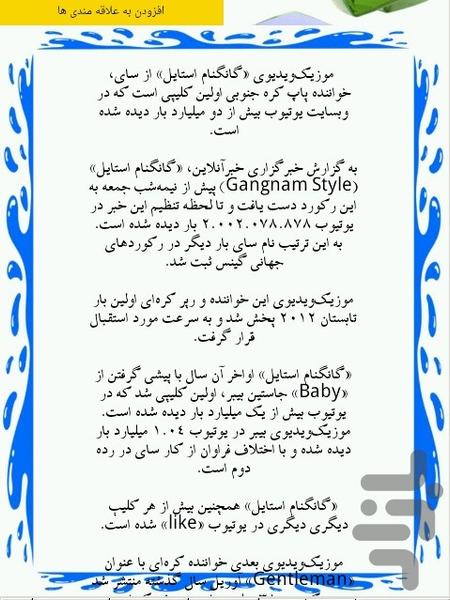 افزودن به علاقه مندی ها
موزیک‌ویدیوی «گانگنام استایل» از سای،
خواننده پاپ کره جنوبی اولین کلیپی است که در
وبسایت یوتیوب بیش از دو میلیارد بار دیده شده
است.
به گزارش خبرگزاری خبرآنلاین، «گانگنام استایل»
(Gangnam Style) پیش از نیمه‌شب جمعه به
این رکورد دست یافت و تا لحظه تنظیم این خبر در
یوتیوب ۲.۰۰۲.۰۷۸.۸۷۸ بار دیده شده است.
به این ترتیب نام سای بار دیگر در رکوردهای
جهانی گینس ثبت شد.
موزیک‌ویدیوی این خواننده و رپر کره‌ای اولین بار
تابستان ۲۰۱۲ پخش شد و به سرعت مورد استقبال
قرار گرفت.
«گانگنام استایل» اواخر آن سال با پیشی گرفتن از
«Baby» جاستین بیبر، اولین کلیپی شد که در
یوتیوب بیش از یک میلیارد بار دیده شده است.
موزیک‌ویدیوی بیبر در یوتیوب ۱.۰٤ میلیارد بار
دیده شده و با اختلاف فراوان از کار سای در رده
دوم است.
«گانگنام استایل» همچنین بیش از هر کلیپ
دیگری دیگری در یوتیوب «like» شده است.
موزیک‌ویدیوی بعدی خواننده کره‌ای با عنوان
«Gentleman» آوریل سال گذشته منتشر شد
بازار